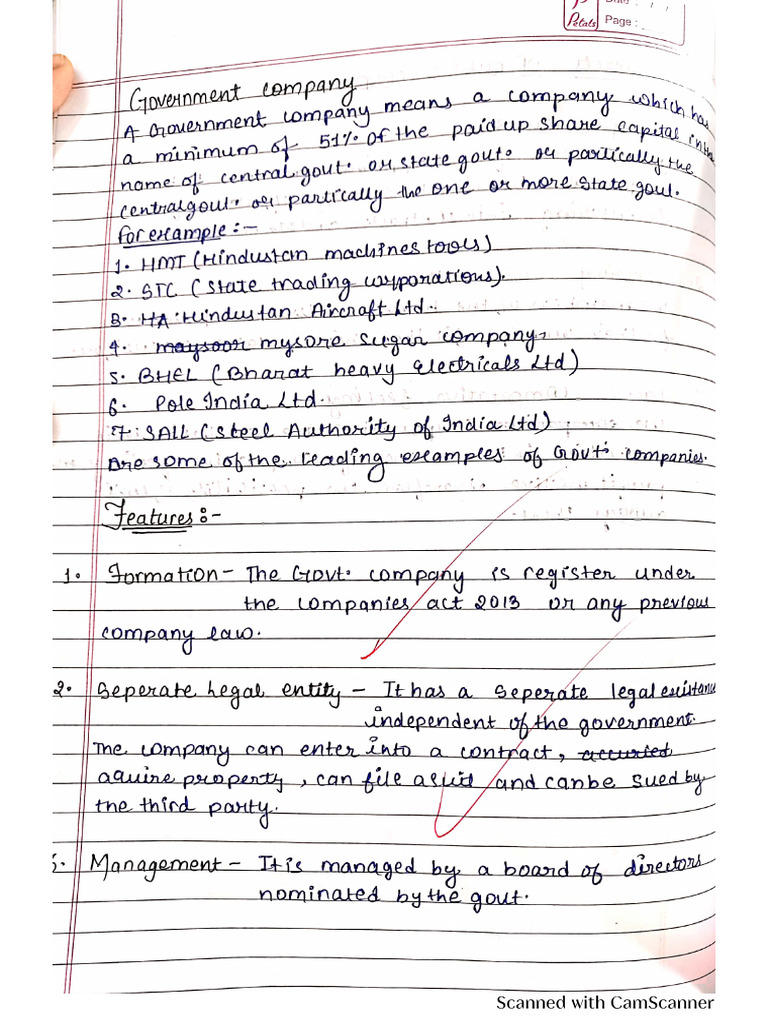 Date : / /
Petals Page :
Government company
A Government company means a company which has
a minimum of 51% of the paid up share capital in the
name of central govt. or state govt. or partically the
central govt. or partically the one or more state govt.
for example :-
1. HMT (Hindustan machines tools)
2. STC (State trading corporations).
3. HA Hindustan Aircraft Ltd.
4. maysoor mysore sugar company.
5. BHEL (Bharat heavy Electricals Ltd)
6. Pole India Ltd.
7. SAIL (Steel Authority of India Ltd)
Are some of the leading examples of Govt. companies.
Features :-
1. Formation - The Govt. company is register under
the companies act 2013 or any previous
company law.
2. Seperate legal entity - It has a seperate legal existance
independent of the government.
The company can enter into a contract, accuried
aquire property, can file a suit and can be sued by
the third party.
3. Management - It is managed by a board of directors
nominated by the govt.
Scanned with CamScanner